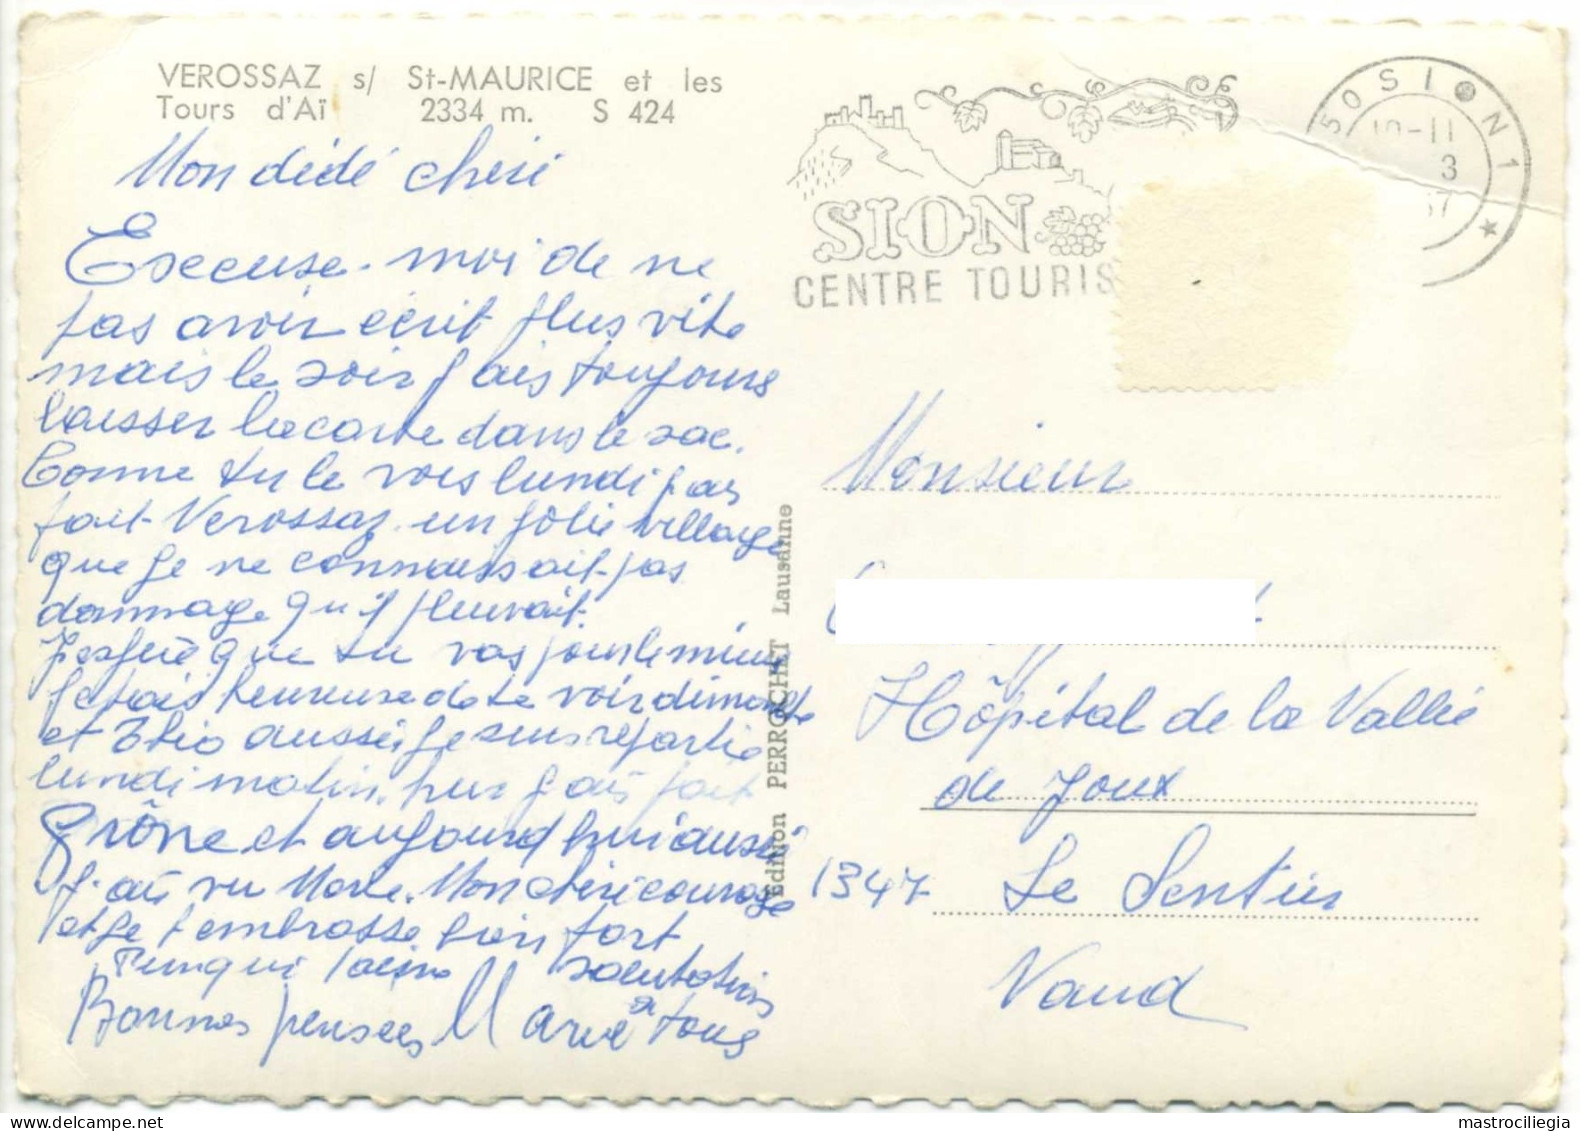 VEROSSAZ s/ St-MAURICE et les
Tours d'Aï 2334 m. S 424
Mon dédé cheri
Excuse-moi de ne
pas avoir écrit plus vite
mais le soir j'ais toujours
laisser la carte dans le sac.
Comme tu le vois lundi j'ais
fait Verossaz un jolie village
que je ne connaissait pas
dommage qu'il pleuvait.
J'espère que tu vas jours le mieux
j'etais heureuse de te voir dimanche
et aussi je suis repartie
lundi matin. hier j'ais fait
Grône et aujourd'hui aussi
j'ais vu Mon chéri courage
et je t'embrasse bien fort
salutations
Bonnes pensées à tous
Edition PERROCHET Lausanne
SION
CENTRE TOURIS
50 SION 1
10-11
3
67
Monsieur
Hôpital de la Vallée
de Joux
1347 Le Sentier
Vaud
delcampe.net
mastrociliegia